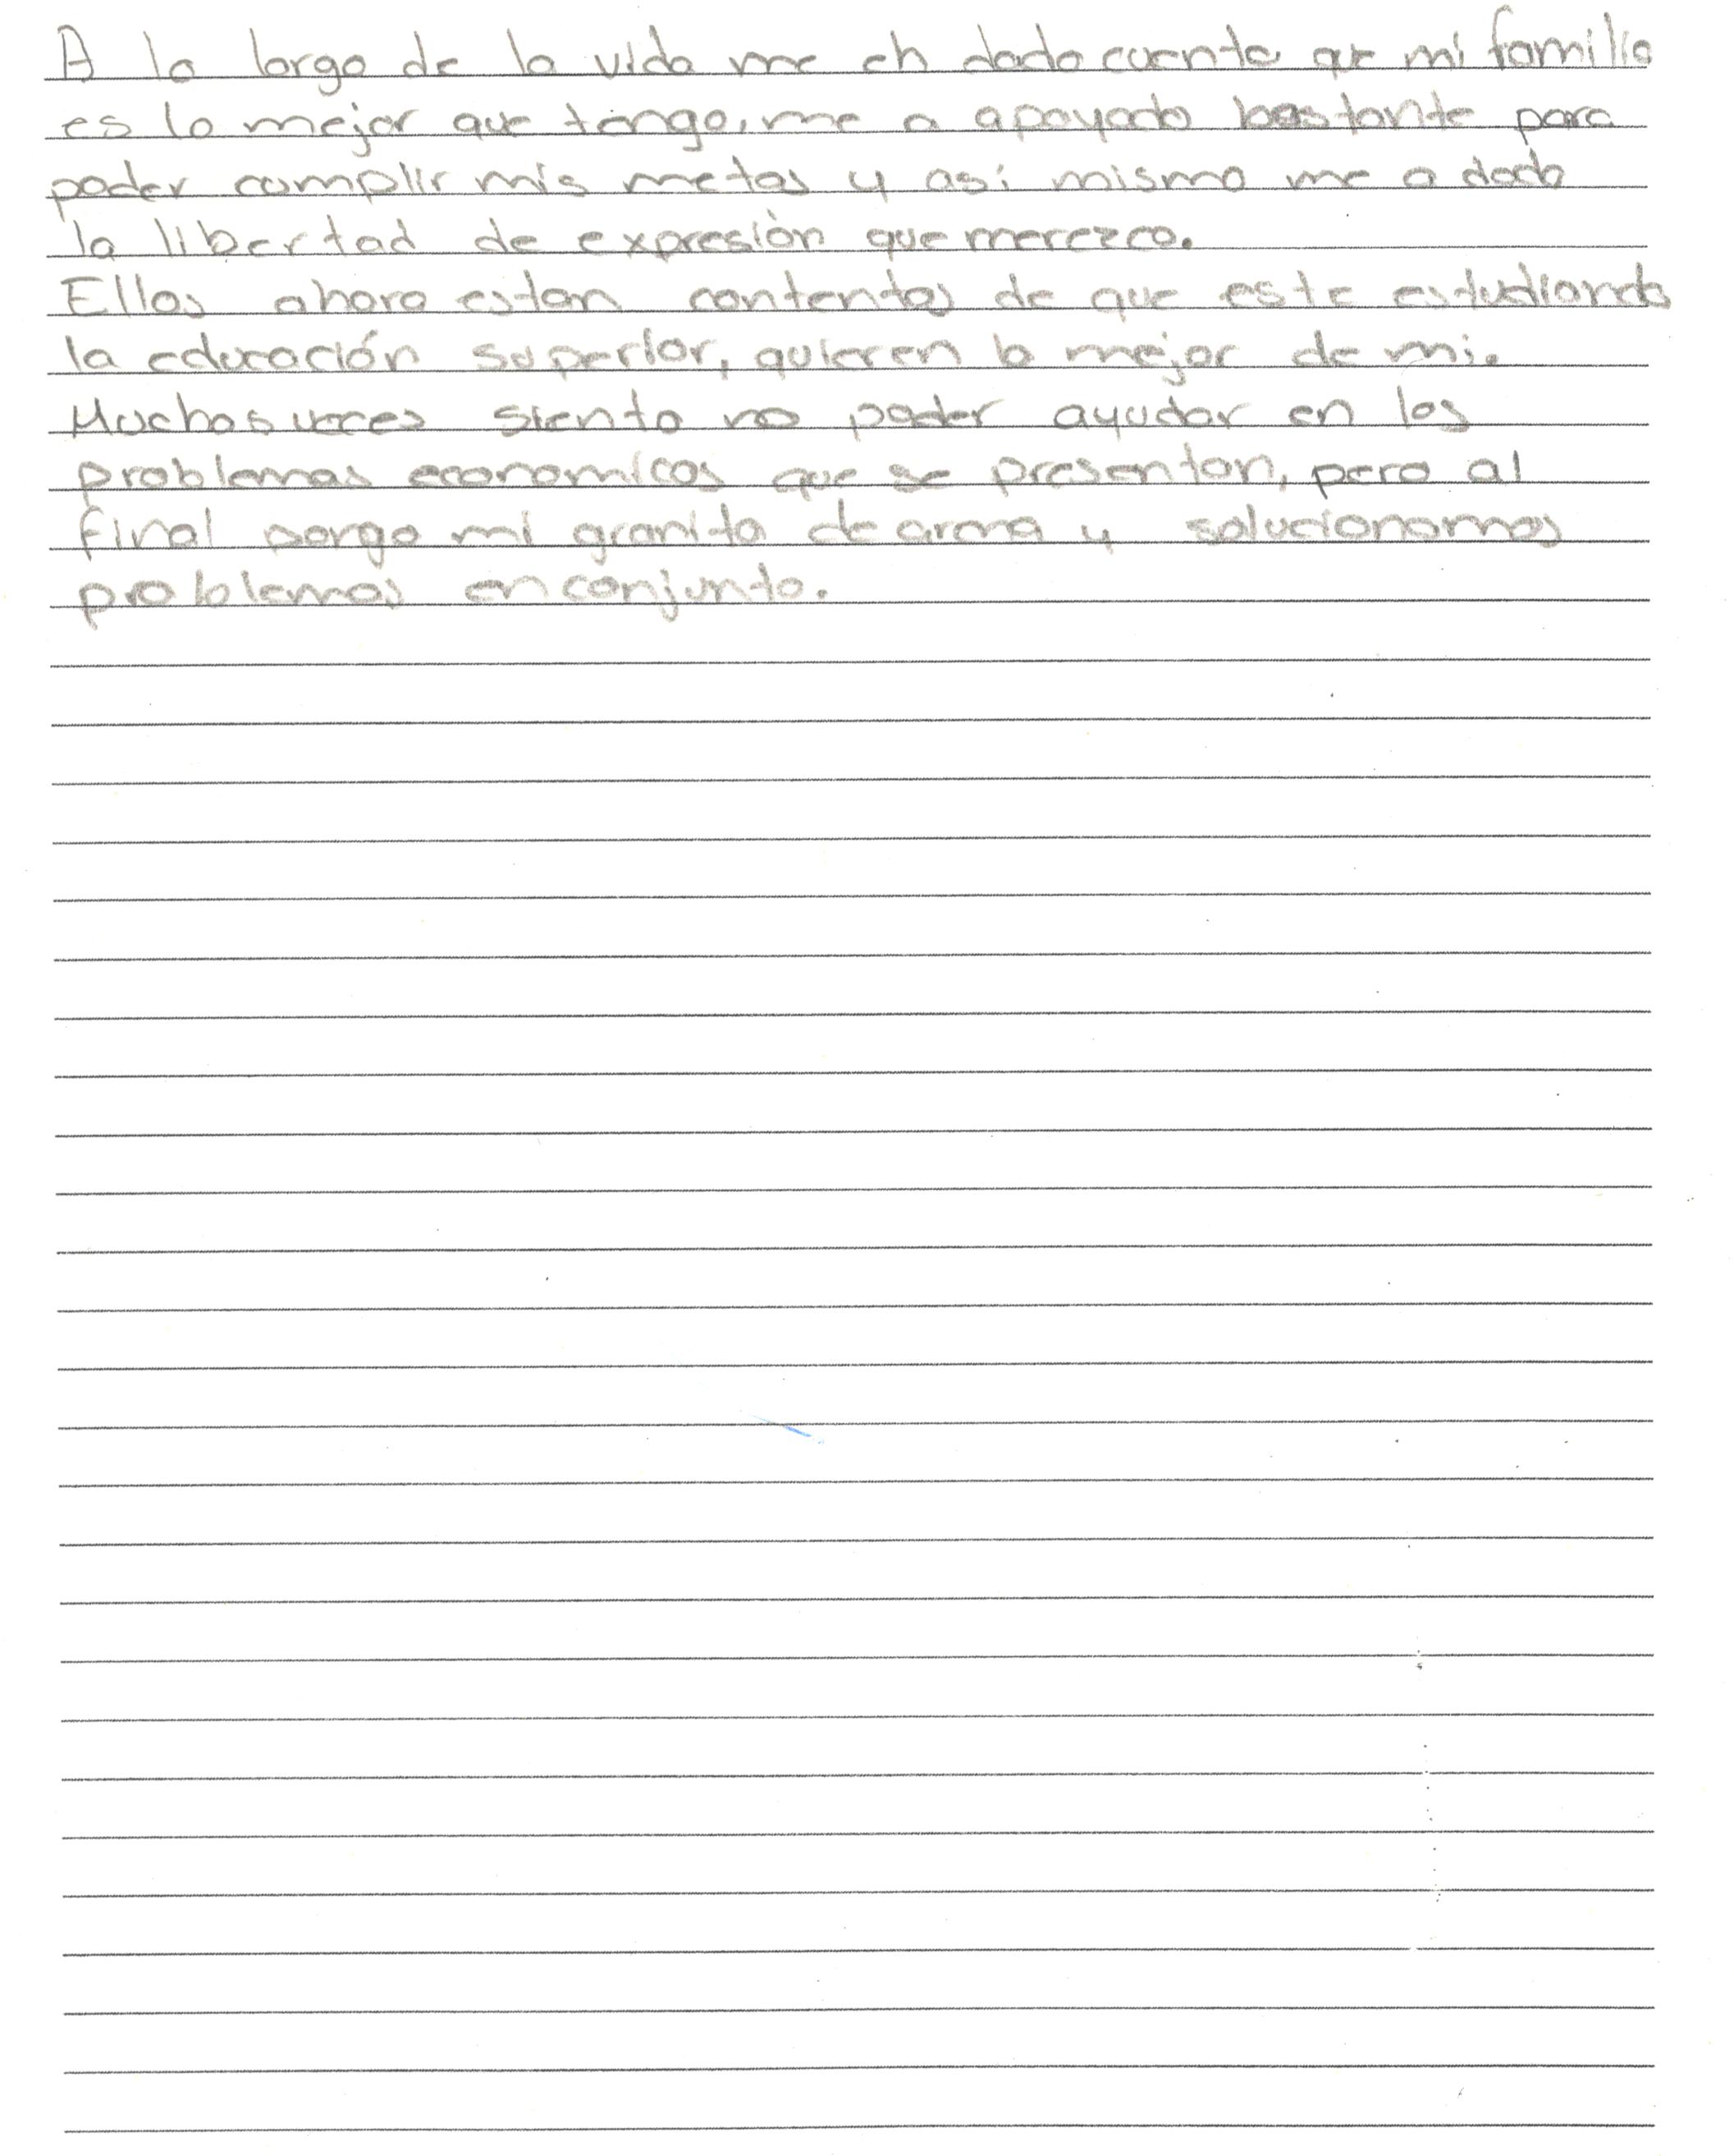 A lo largo de la vida me eh dado cuenta que mi familia
es lo mejor que tengo, me a apoyado bastante para
poder cumplir mis metas y asi mismo me a dado
la libertad de expresión que merezco.
Ellos ahora estan contentos de que este estudiando
la educación superior, quieren lo mejor de mi.
Muchas veces siento no poder ayudar en los
problemas economicos que se presentan, pero al
final pongo mi granito de arena y solucionamos
problemas en conjunto.